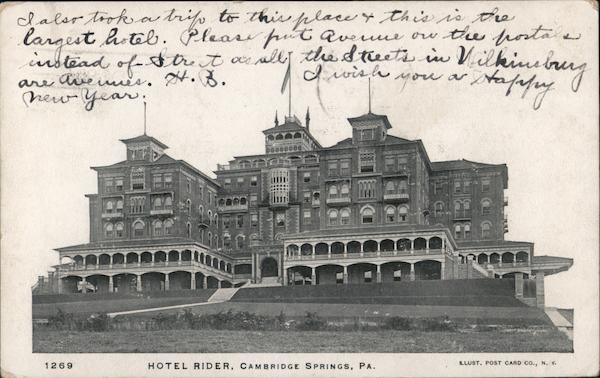 I also took a trip to this place & this is the
largest hotel. Please put Avenue on the postals
instead of Street as all the Streets in Wilkinsburg
are Avenues. H.B. I wish you a Happy
New Year.
1269 HOTEL RIDER, CAMBRIDGE SPRINGS, PA. ILLUST. POST CARD CO., N. Y.